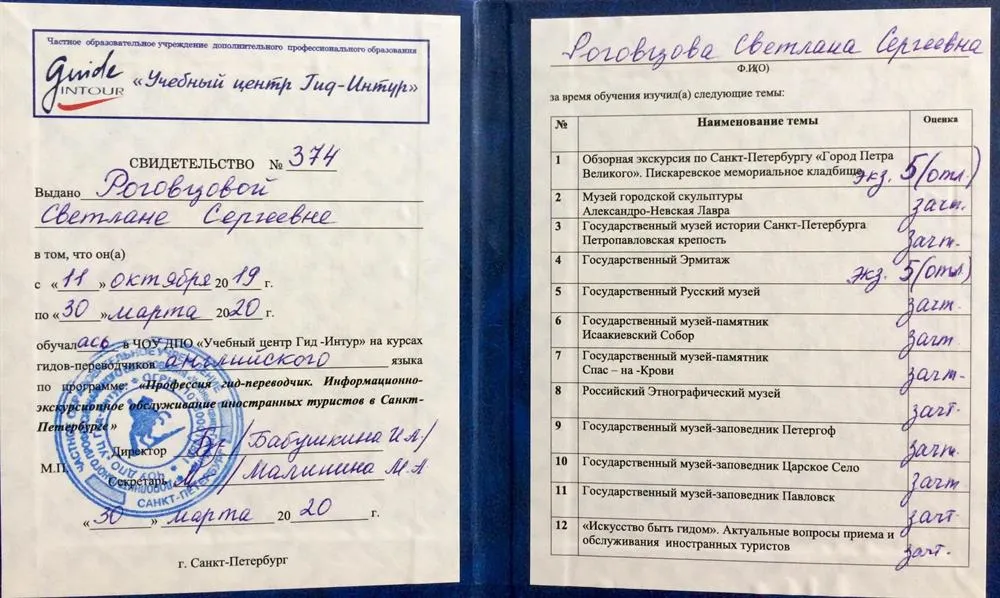 Частное образовательное учреждение дополнительного профессионального образования
guide
INTOUR
«Учебный центр Гид-Интур»
СВИДЕТЕЛЬСТВО № 374
Выдано Роговцовой
Светлане Сергеевне
в том, что он(а)
с «11» октября 2019 г.
по «30» марта 2020 г.
обучалась в ЧОУ ДПО «Учебный центр Гид -Интур» на курсах
гидов-переводчиков английского языка
по программе: «Профессия гид-переводчик. Информационно-
экскурсионное обслуживание иностранных туристов в Санкт-
Петербурге»
Директор /Бабушкина И.Л./
М.П.
Секретарь /Малинина М.А
«30» марта 2020 г.
г. Санкт-Петербург
САНКТ-ПЕТЕРБУРГ
Роговцова Светлана Сергеевна
Ф.И(О)
за время обучения изучил(а) следующие темы:
№ Наименование темы Оценка
1 Обзорная экскурсия по Санкт-Петербургу «Город Петра
Великого». Пискаревское мемориальное кладбище экз. 5(отл.)
2 Музей городской скульптуры
Александро-Невская Лавра зачт.
3 Государственный музей истории Санкт-Петербурга
Петропавловская крепость зачт.
4 Государственный Эрмитаж экз. 5(отл.)
5 Государственный Русский музей зачт.
6 Государственный музей-памятник
Исаакиевский Собор зачт.
7 Государственный музей-памятник
Спас – на -Крови зачт.
8 Российский Этнографический музей зачт.
9 Государственный музей-заповедник Петергоф зачт.
10 Государственный музей-заповедник Царское Село зачт.
11 Государственный музей-заповедник Павловск зачт.
12 «Искусство быть гидом». Актуальные вопросы приема и
обслуживания иностранных туристов зачт.